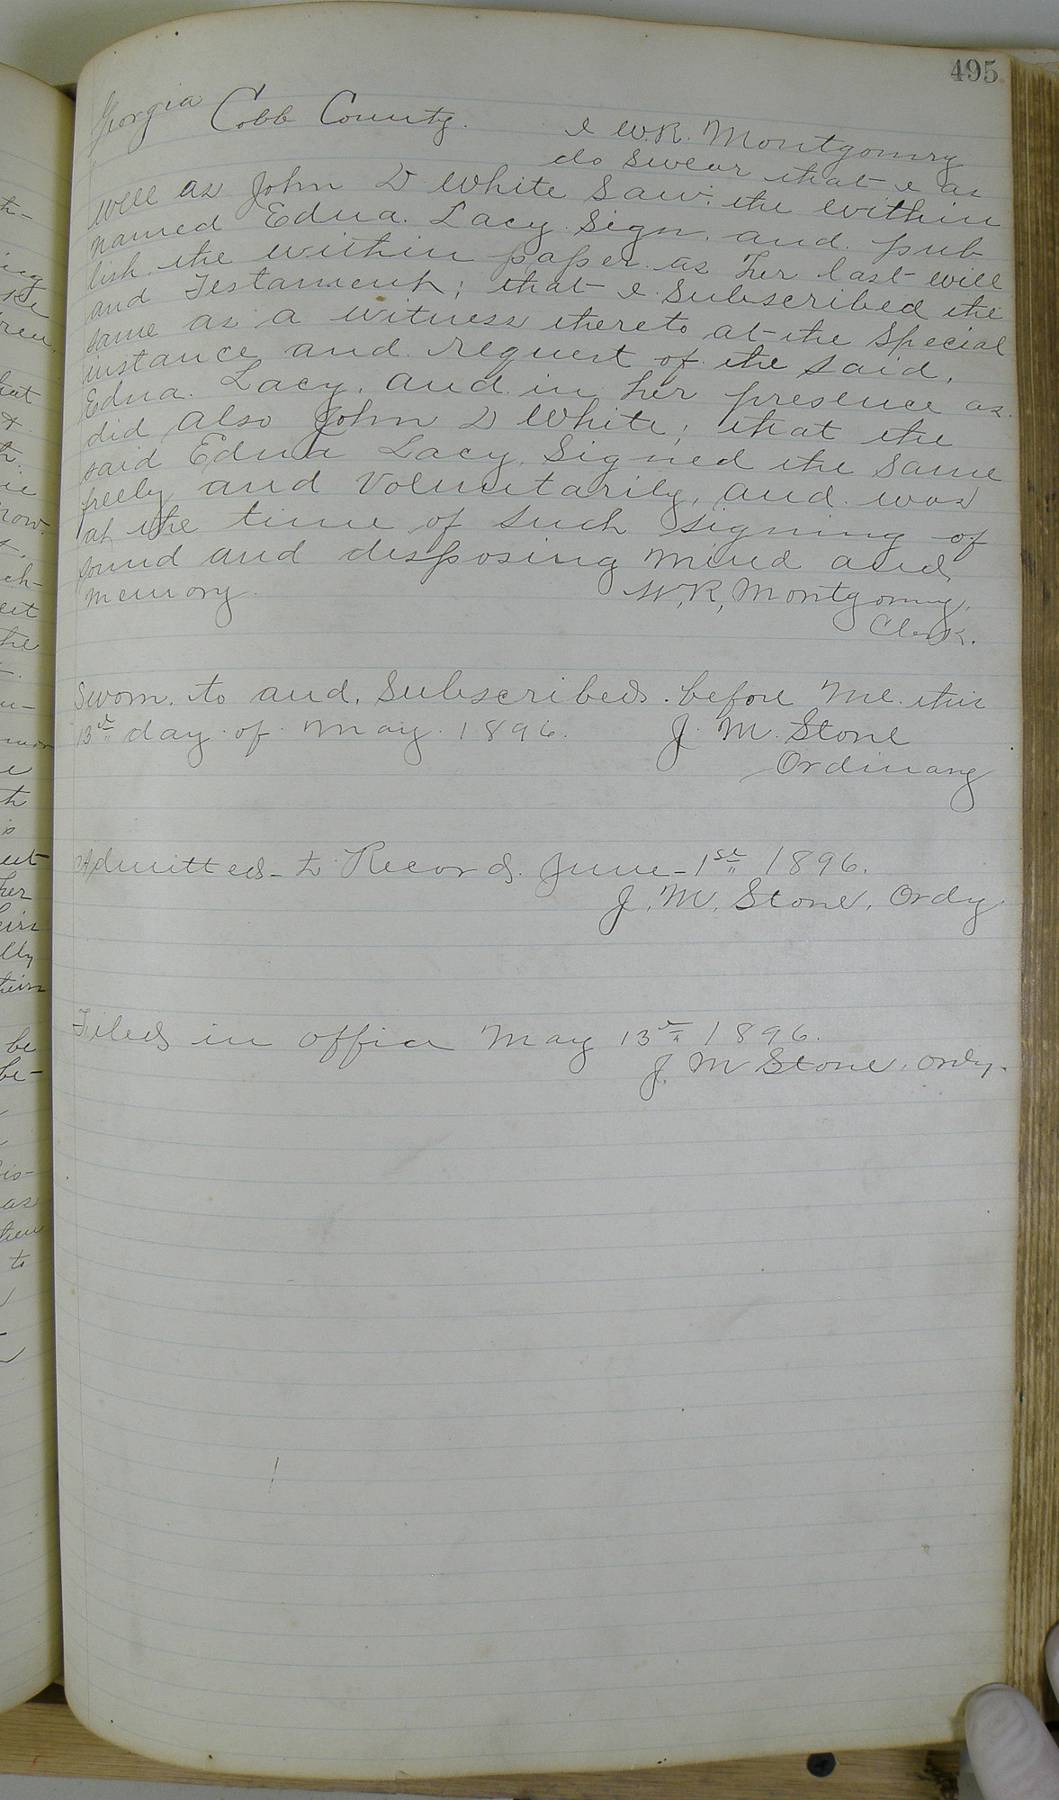 495
Georgia Cobb County. I W.R. Montgomry
do swear that I as
well as John D White Saw. the within
named Edna. Lacy. Sign. and. pub
lish. the within paper. as her last will
and Testament; that I Subscribed the
same as a witness thereto at the Special
instance, and. request of. the said,
Edna. Lacy. and. in her presence as.
did also John D White; that the
said Edna Lacy. Signed the same
freely and Voluntarily, and. was
at the time of such signing of
sound and disposing mind and,
memory.
W, R, Montgomry,
Clerk.
Sworn. to and, Subscribed. before Me. this
13th day. of. May. 1896. J. M. Stone
Ordinary
Admitted to Record. June 1st 1896.
J. M. Stone, Ordy.
Filed in office May 13th 1896.
J. M Stone, Ordy.